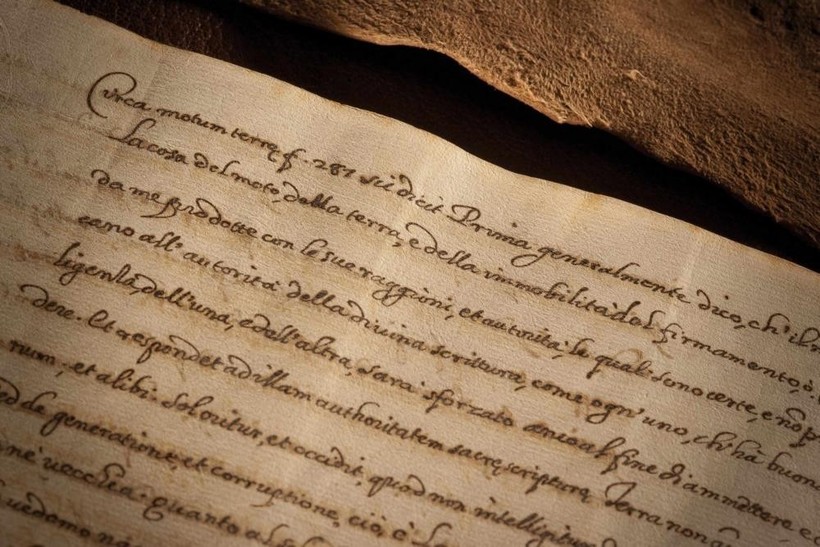 Circa motum terrę f. 287 sic dicit Prima generalmente dico, ch'il
La cosa del moto, della terra, e della immobilità del firmamento, ò
da me prodotte con le sue raggioni, et autorità, le quali sono certe, e nõ p
cano all'autorità della divina scrittura, come ogn'uno, ch'hà buona
ligenza, dell'una, e dell'altra, sarà sforzato anco al fine di ammettere, e
dere. Et respondet ad illam authoritatem sacrę scripturę, Terra non
rum, et alibi. Sol oritur, et occidit, quod non intelligitur
ed de generatione, et corruptione, cioè, la
nè vecchia: quanto al